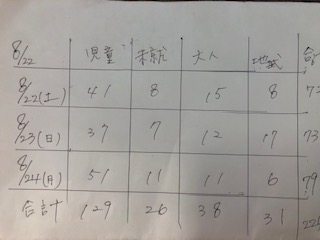 8/22 児童 未就 大人 地域 合
8/22(土) 41 8 15 8 72
8/23(日) 37 7 12 17 73
8/24(月) 51 11 11 6 79
合計 129 26 38 31